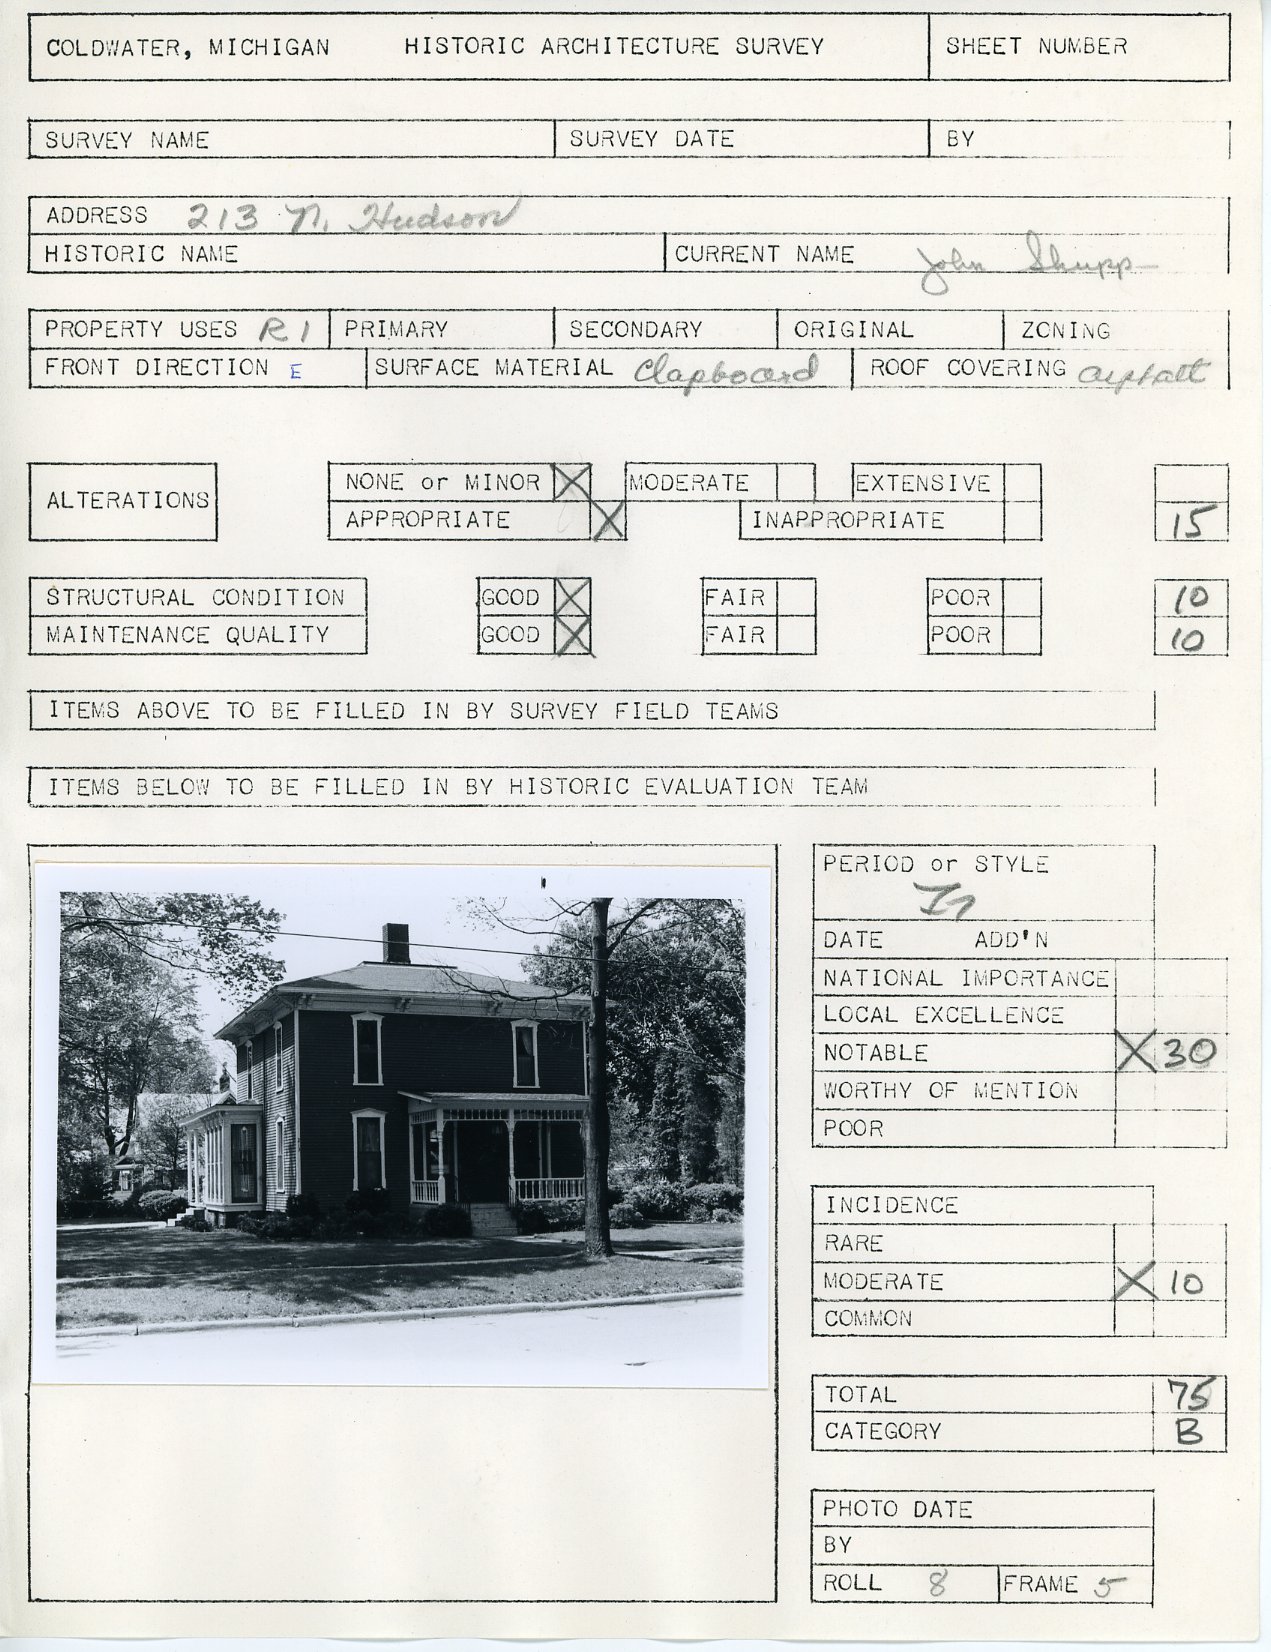 COLDWATER, MICHIGAN HISTORIC ARCHITECTURE SURVEY SHEET NUMBER
SURVEY NAME SURVEY DATE BY
ADDRESS 213 N. Hudson
HISTORIC NAME CURRENT NAME John Shupp
PROPERTY USES R1 PRIMARY SECONDARY ORIGINAL ZONING
FRONT DIRECTION E SURFACE MATERIAL Clapboard ROOF COVERING asphalt
ALTERATIONS
NONE or MINOR X MODERATE EXTENSIVE
APPROPRIATE X INAPPROPRIATE 15
STRUCTURAL CONDITION GOOD X FAIR POOR 10
MAINTENANCE QUALITY GOOD X FAIR POOR 10
ITEMS ABOVE TO BE FILLED IN BY SURVEY FIELD TEAMS
ITEMS BELOW TO BE FILLED IN BY HISTORIC EVALUATION TEAM
PERIOD or STYLE
DATE ADD'N
NATIONAL IMPORTANCE
LOCAL EXCELLENCE
NOTABLE X 30
WORTHY OF MENTION
POOR
INCIDENCE
RARE
MODERATE X 10
COMMON
TOTAL 75
CATEGORY B
PHOTO DATE
BY
ROLL 8 FRAME 5